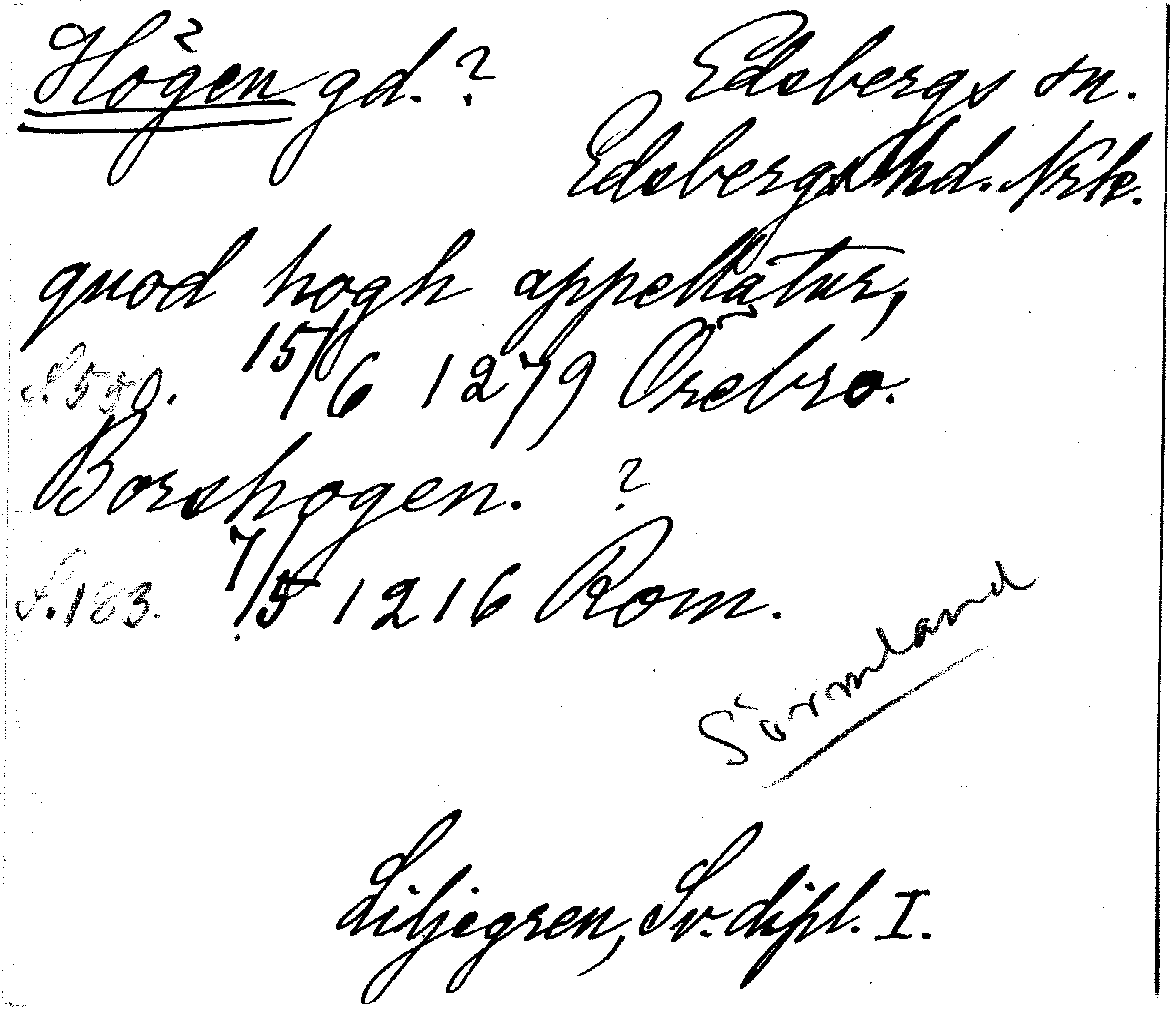 Högen gd.? Edsbergs sn.
Edsbergs hd. Nrk.
quod hogh appellatur,
S. 550. 15/6 1279 Örebro.
Borshogen. ?
S. 183. 7/5 1216 Rom.
Sörmland
Liljegren, Sv. dipl. I.